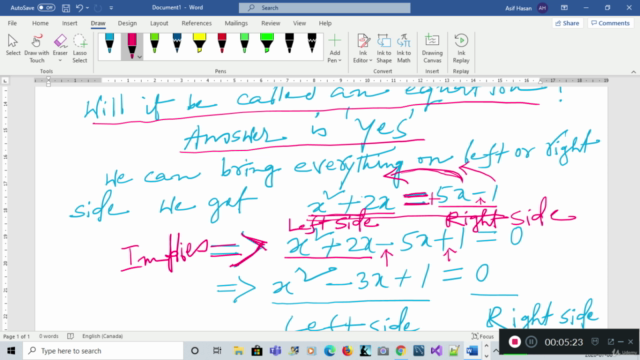 AutoSave Off Document1 - Word Search Asif Hasan AH
File Home Insert Draw Design Layout References Mailings Review View Help Share Comments
Select Draw with Touch Eraser Lasso Select Add Pen Ink Editor Ink to Shape Ink to Math Ink Replay
Tools Pens Convert Replay
Will it be called an equation?
Answer is 'Yes'
We can bring everything on left or right
side we get x² + 2x = +5x - 1
Left side Right side
Implies => x² + 2x - 5x + 1 = 0
=> x² - 3x + 1 = 0
Left side Right side
Page 1 of 1 0 words English (Canada) Focus
Type here to search
00:05:23